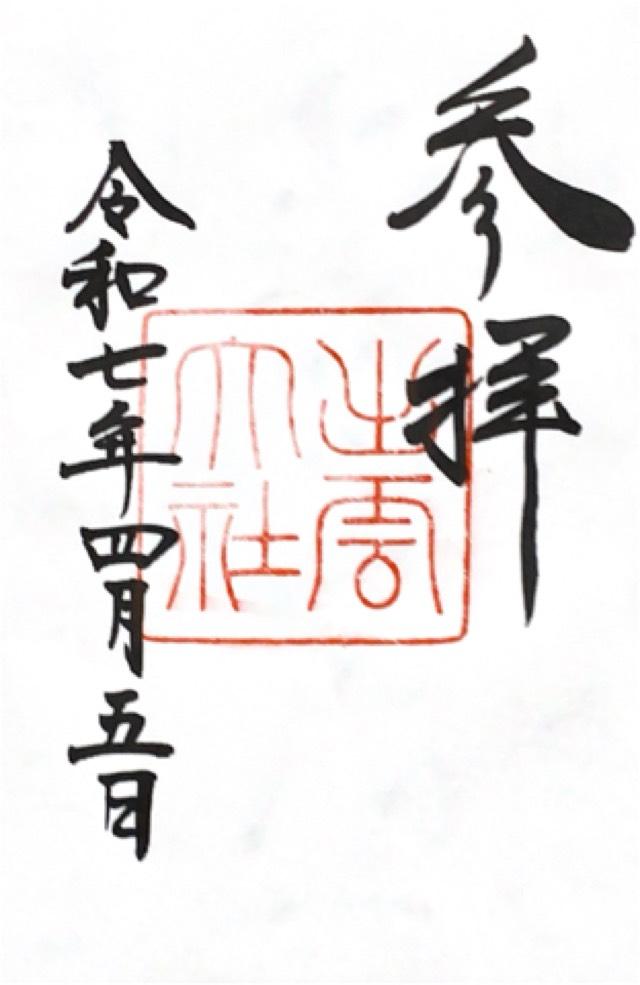 参拝
出雲
大社
令和七年四月五日